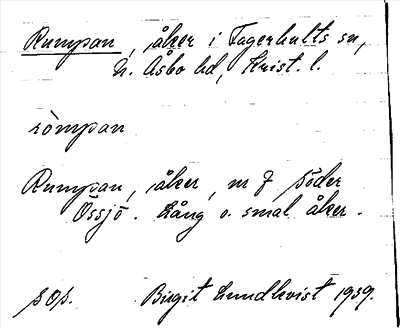 Rumpan, åker i Fagerhults sn,
N. Åsbo hd, Krist. l.
ròmpan
Rumpan, åker, nr 7 Söder
Össjö. Lång o. smal åker.
sop. Birgit Lundkvist 1939.